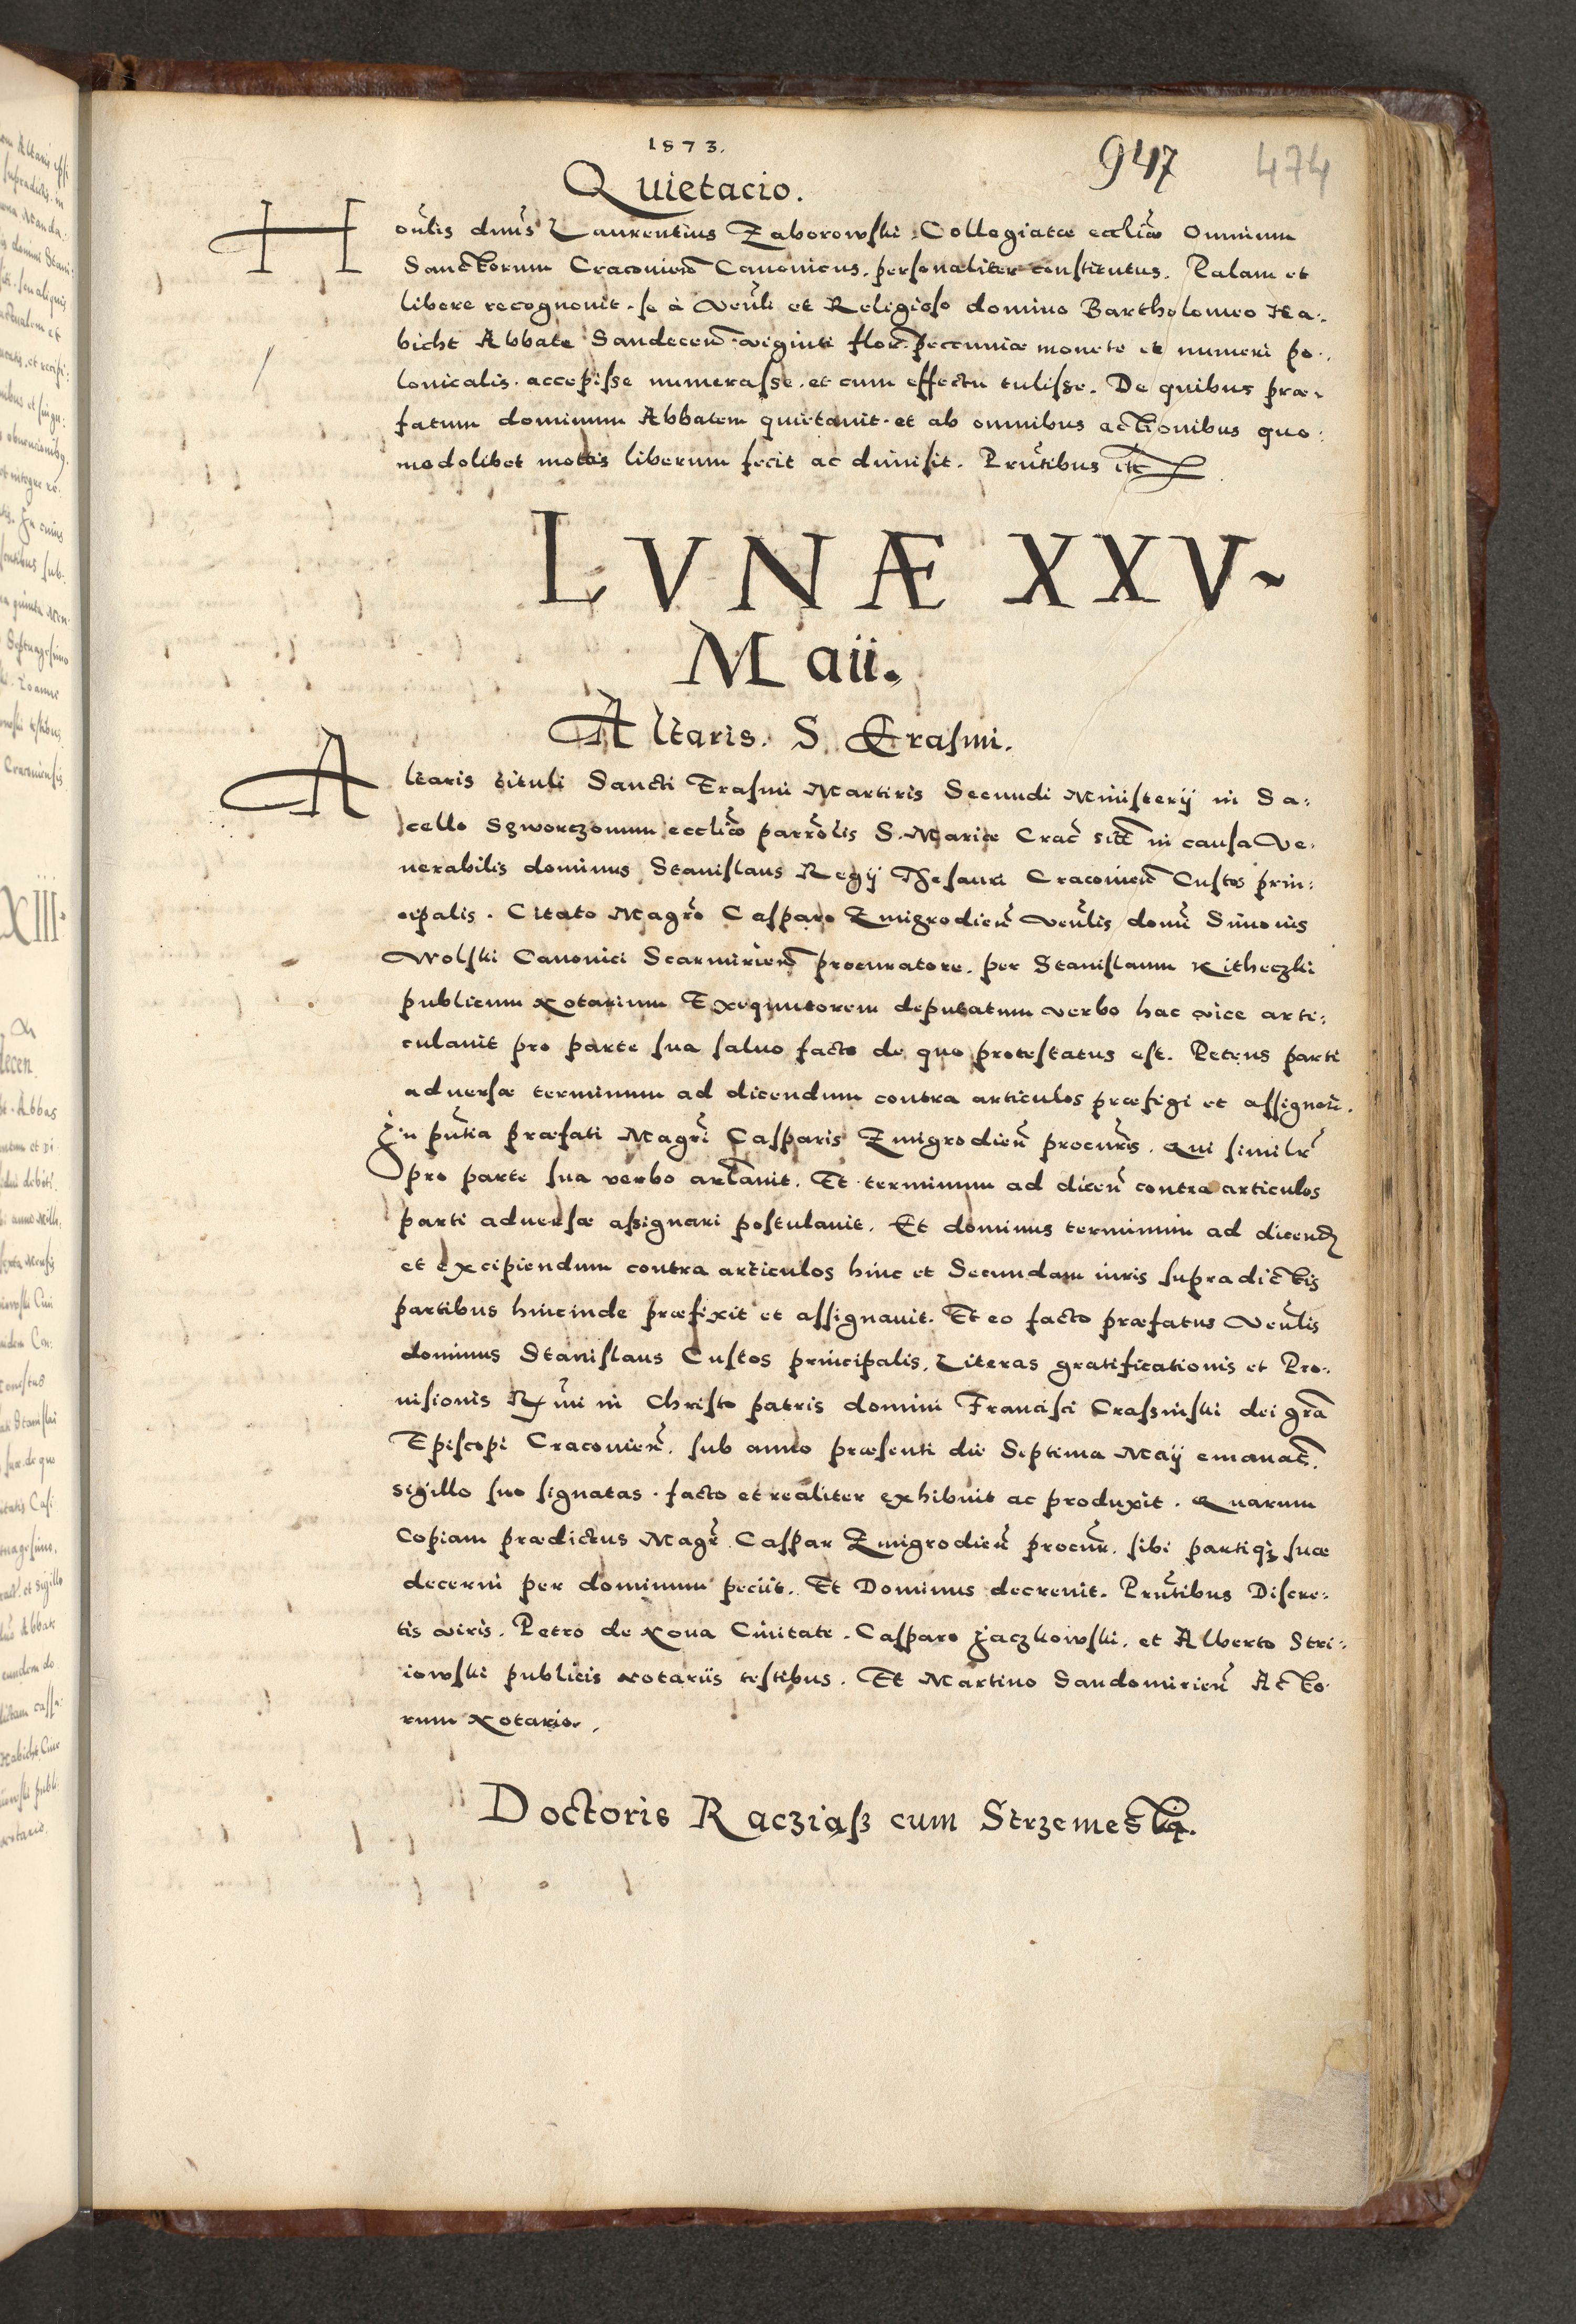 1573.
947 474
Quietacio.
Honlis dnus Laurentius Zaborowski Collegiatæ eccliæ Omnium
Sanctorum Cracovien Canonicus. personaliter constitutus. Palam et
libere recognovit. se à Venli et Religioso domino Bartholomeo Ha:
bicht Abbate Sandecen viginti flor. pecuniæ monete et numeri po:
lonicalis. accepisse numerasse. et cum effectu tulisse. De quibus præ:
fatum dominum Abbatem quietavit. et ab omnibus actionibus quo:
modolibet motis liberum fecit ac dimisit. Prntibus etc
LVNÆ XXV
Maii.
Altaris. S. Erasmi.
Altaris tituli Sancti Erasmi Martiris Secundi Ministerij in Sa:
cello Szworczonum eccliæ parrolis S. Mariæ Crac sitt in causa Ve:
nerabilis dominus Stanislaus Regij Thesauri Cracovien Custos prin:
cipalis. Citato Magro Casparo Zmigrodien Venlis domi Simonis
Wolski Canonici Scarmirien procuratore. per Stanislaum Kitheczki
publicum Notarium Exequutorem deputatum verbo hac vice arti:
culavit pro parte sua salvo facto de quo protestatus est. Petens parti
adversæ terminum ad dicendum contra articulos præfigi et assignari.
In pntia præfati Magri Casparis Zmigrodien procuris. Qui similr
pro parte sua verbo artavit. Et terminum ad dicen contra articulos
parti adversæ assignari postulavit. Et dominus terminum ad dicend
et excipiendum contra articulos hinc et Secundam iuris supradictis
partibus hincinde præfixit et assignavit. Et eo facto præfatus Venlis
dominus Stanislaus Custos principalis. Literas gratificationis et Pro:
visionis Rmi in Christo patris domini Francisci Crassinski dei gra
Episcopi Cracovien. sub anno præsenti die Septima Maij emanat.
sigillo suo signatas. facto et realiter exhibuit ac produxit. Quarum
Copiam prædictus Magr Caspar Zmigrodien procur. sibi partiq3 suæ
decerni per dominum peciit. Et Dominus decrevit. Prntibus Discre:
tis viris. Petro de Nova Civitate. Casparo Jaczkowski. et Alberto Stri:
iowski publicis Notariis testibus. Et Martino Sandomirien Acto
rum Notario.
Doctoris Racziąsz cum Strzemeski.